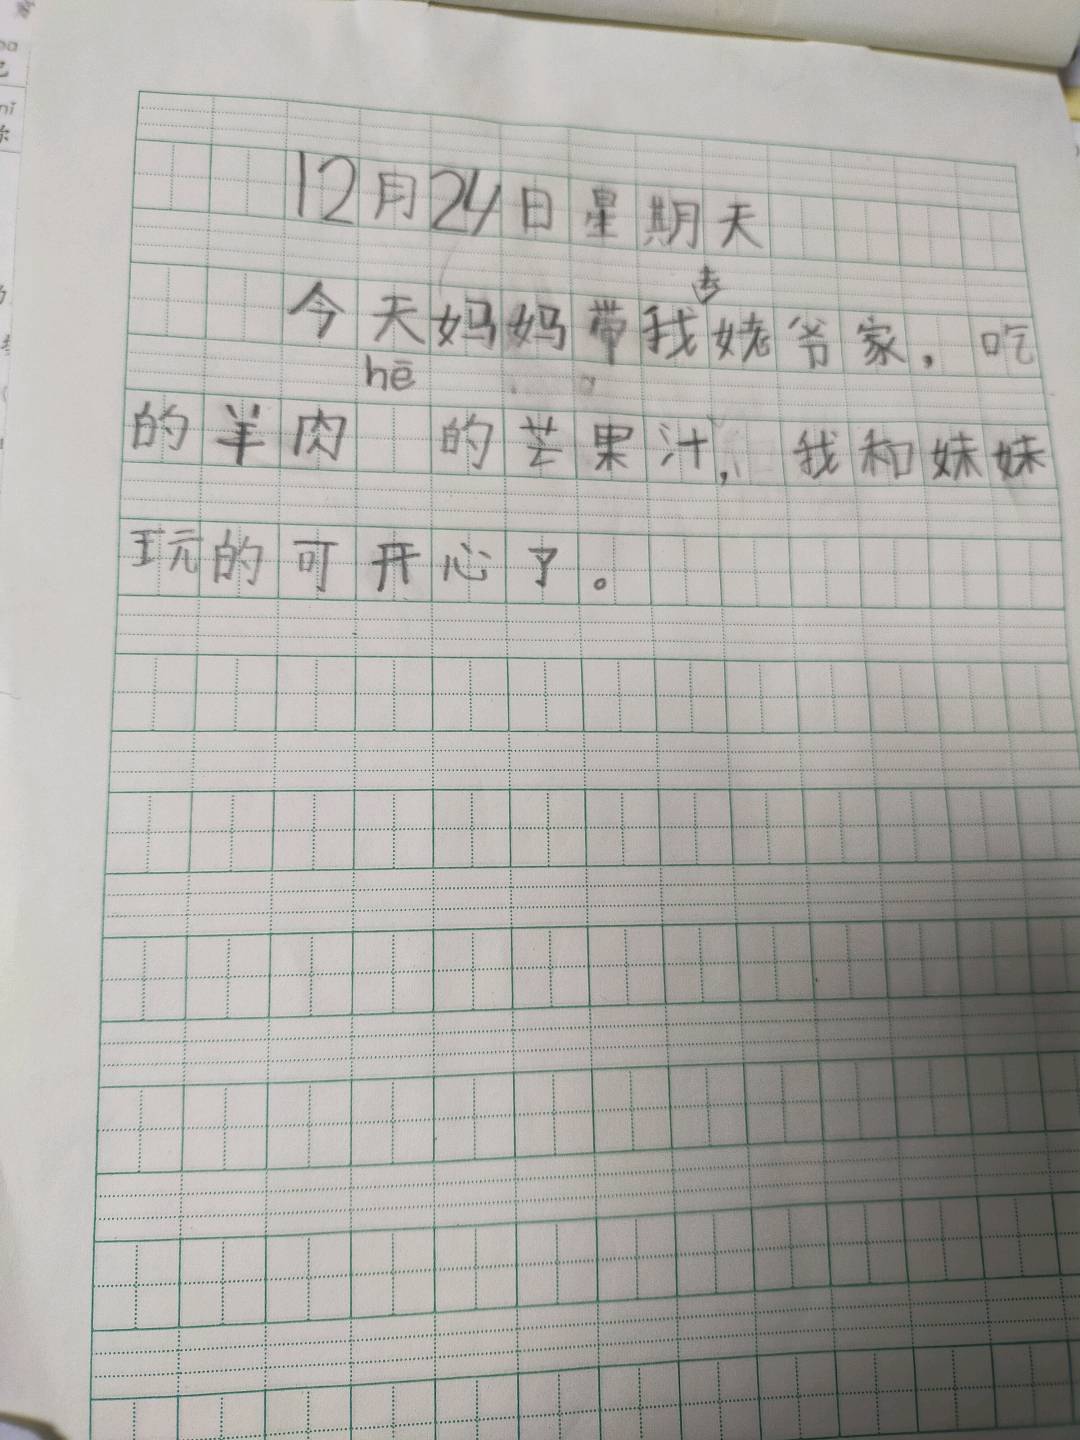 12月24日星期天
今天妈妈带我去姥爷家，吃
的羊肉hē的芒果汁，我和妹妹
玩的可开心了。